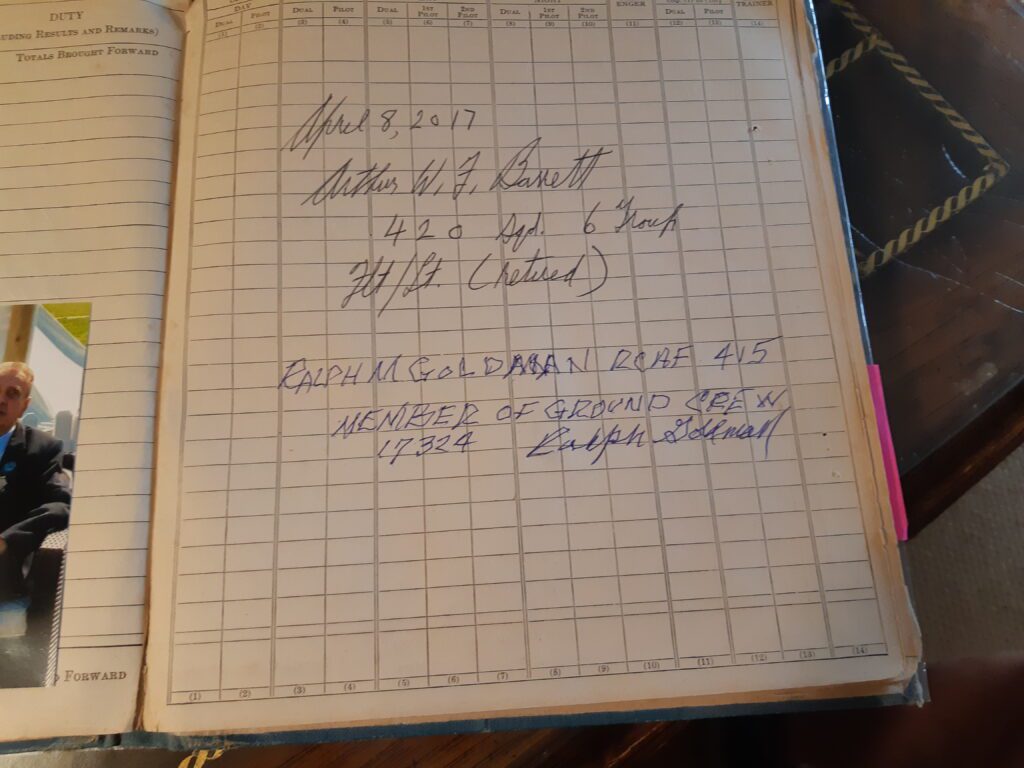 DUTY
UDING RESULTS AND REMARKS)
TOTALS BROUGHT FORWARD
DAY
DUAL PILOT DUAL PILOT DUAL 1ST PILOT 2ND PILOT DUAL 1ST PILOT 2ND PILOT ENGER DUAL PILOT TRAINER
(1) (2) (3) (4) (5) (6) (7) (8) (9) (10) (11) (12) (13) (14)
April 8, 2017
Arthur W. F. Barrett
420 Sqd. 6 Group
Flt/Lt. (retired)
RALPH M GOLDMAN RCAF 415
MEMBER OF GROUND CREW
17324 Ralph Goldman
FORWARD
(1) (2) (3) (4) (5) (6) (7) (8) (9) (10) (11) (12) (13) (14)